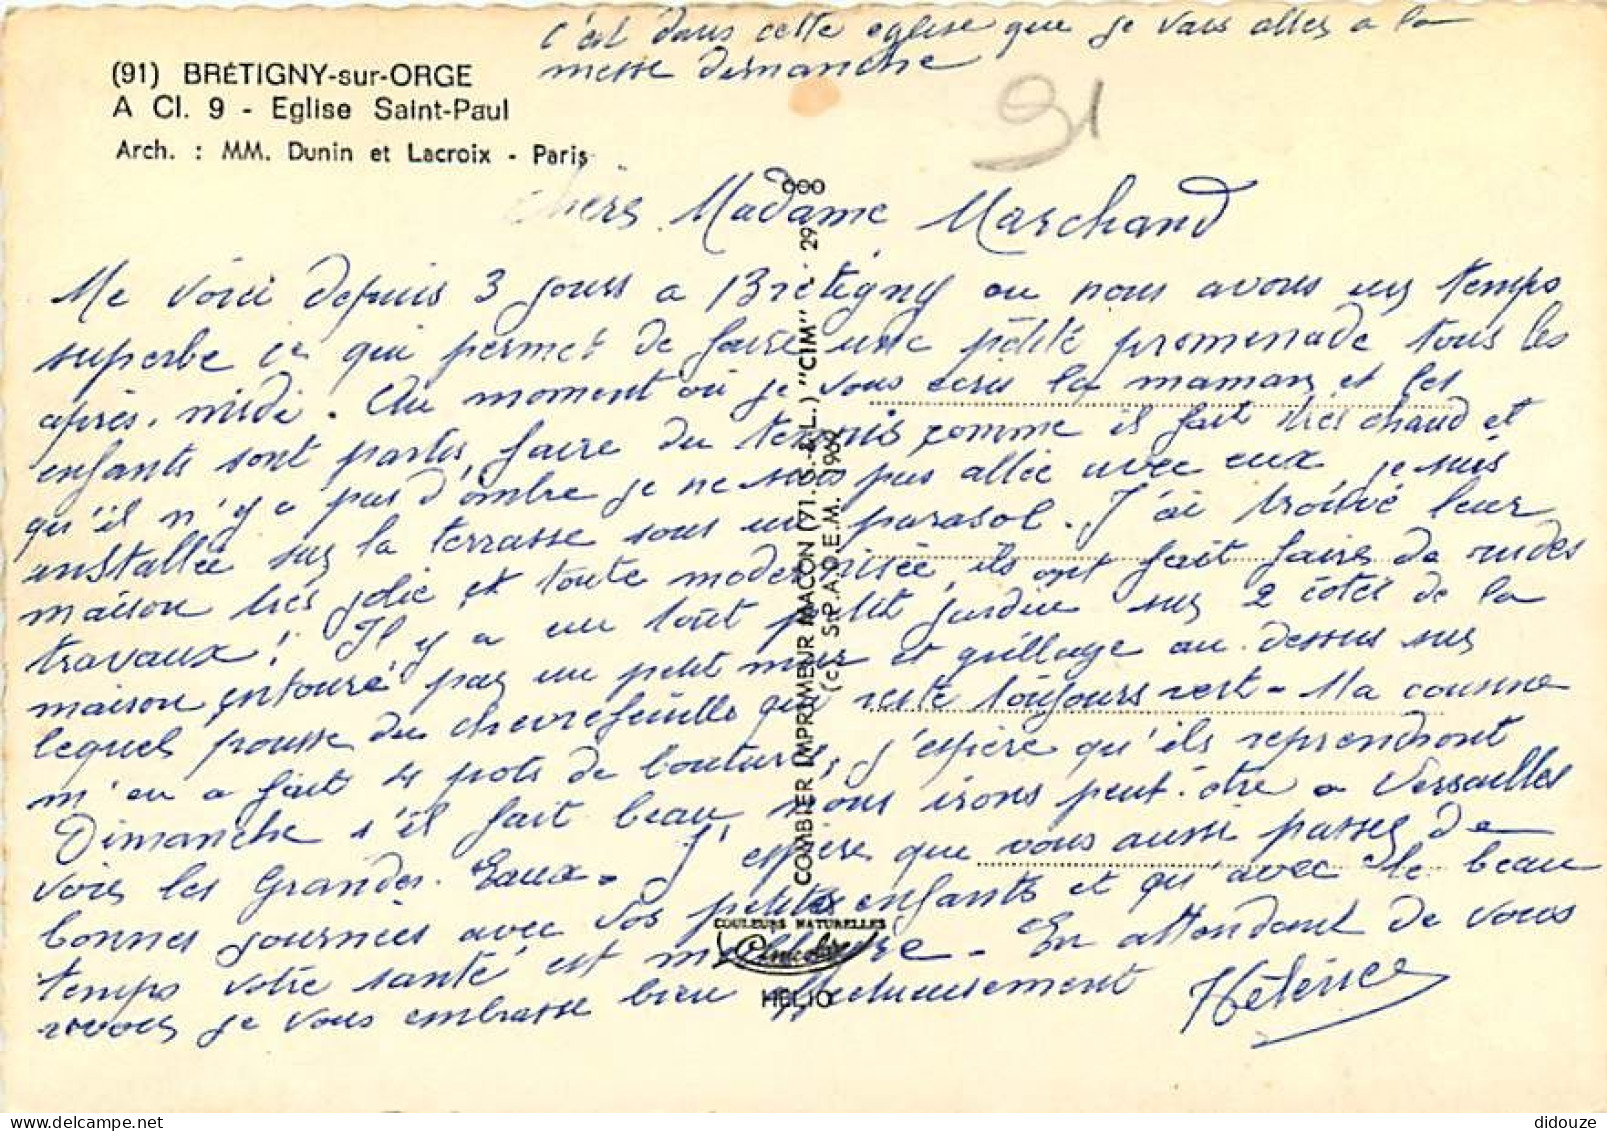 c'est dans cette eglise que je vais aller a la
messe dimanche
(91) BRÉTIGNY-sur-ORGE
A Cl. 9 - Eglise Saint-Paul
Arch. : MM. Dunin et Lacroix - Paris
91
Chère Madame Marchand
Me voici depuis 3 jours a Brétigny ou nous avons un temps
superbe ce qui permet de faire une petite promenade tous les
après. midi. Au moment où je vous écris la maman et les
enfants sont partis faire du tennis comme il fait très chaud et
qu'il n'y a pas d'ombre je ne suis pas allée avec eux je suis
installée sur la terrasse sous un parasol. J'ai trouvé leur
maison très jolie et toute modernisée, ils ont fait faire de rudes
travaux! Il y a un tout petit jardin sur 2 côtés de la
maison entouré par un petit mur et grillage au. dessus sur
lequel pousse du chevrefeuille qui reste toujours vert - Ma cousine
m'en a fait 4 pots de bouture, j'espère qu'ils reprendront
Dimanche s'il fait beau nous irons peut. être a Versailles
voir les Grandes. Eaux. J'espère que vous aussi passez de
bonnes journées avec vos petits enfants et qu'avec le beau
temps votre santé est meilleure - En attendant de vous
revoir je vous embrasse bien affectueusement
Hélène
COMBIER IMPRIMEUR MACON (71. S.-&-L.) "CIM" - 29 000
(c) S.P.A.D.E.M. 1969
COULEURS NATURELLES
HELIO
didouze